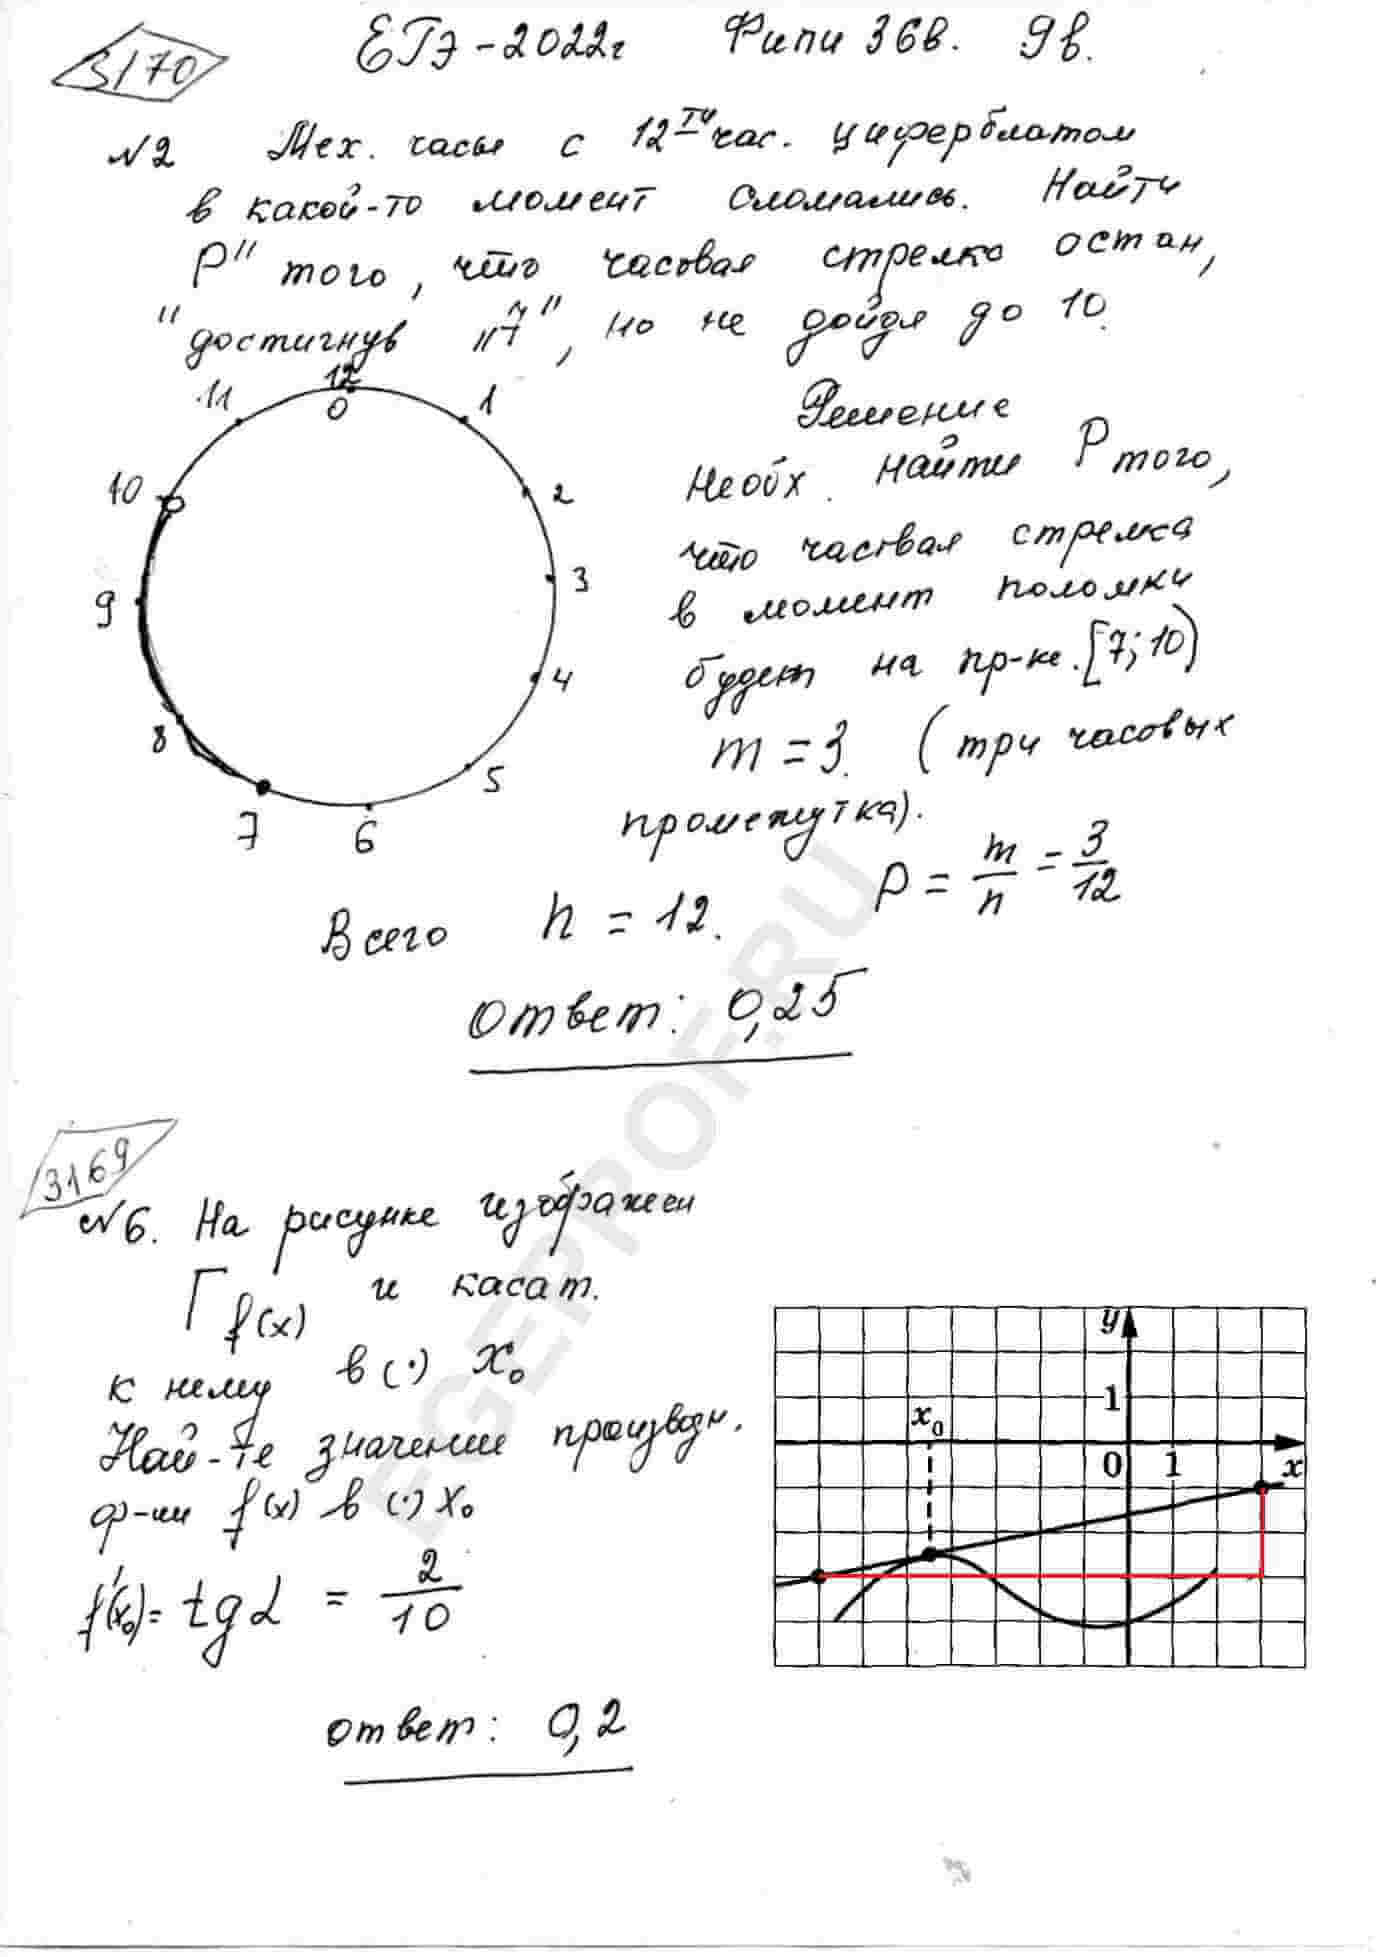 3170
ЕГЭ-2022г Фипи 36в. 9в.
№2 Мех. часы с 12ТИ час. циферблатом
в какой-то момент сломались. Найти
P" того, что часовая стрелка остан,
"достигнув „7", но не дойдя до 10.
12
11 0 1
10 2
9 3
8 4
7 6 5
Решение
Необх. найти P того,
что часовая стрелка
в момент поломки
будет на пр-ке. [7; 10)
m = 3. (три часовых
промежутка).
Всего n = 12. P = m/n = 3/12
Ответ: 0,25
3169
№6. На рисунке изображен
Г f(x) и касат.
к нему в (·) x₀
Най-те значение производн.
ф-ии f(x) в (·) x₀
f'(x₀) = tg α = 2/10
ответ: 0,2
y
1
x₀
0 1 x
EGEPROF.RU